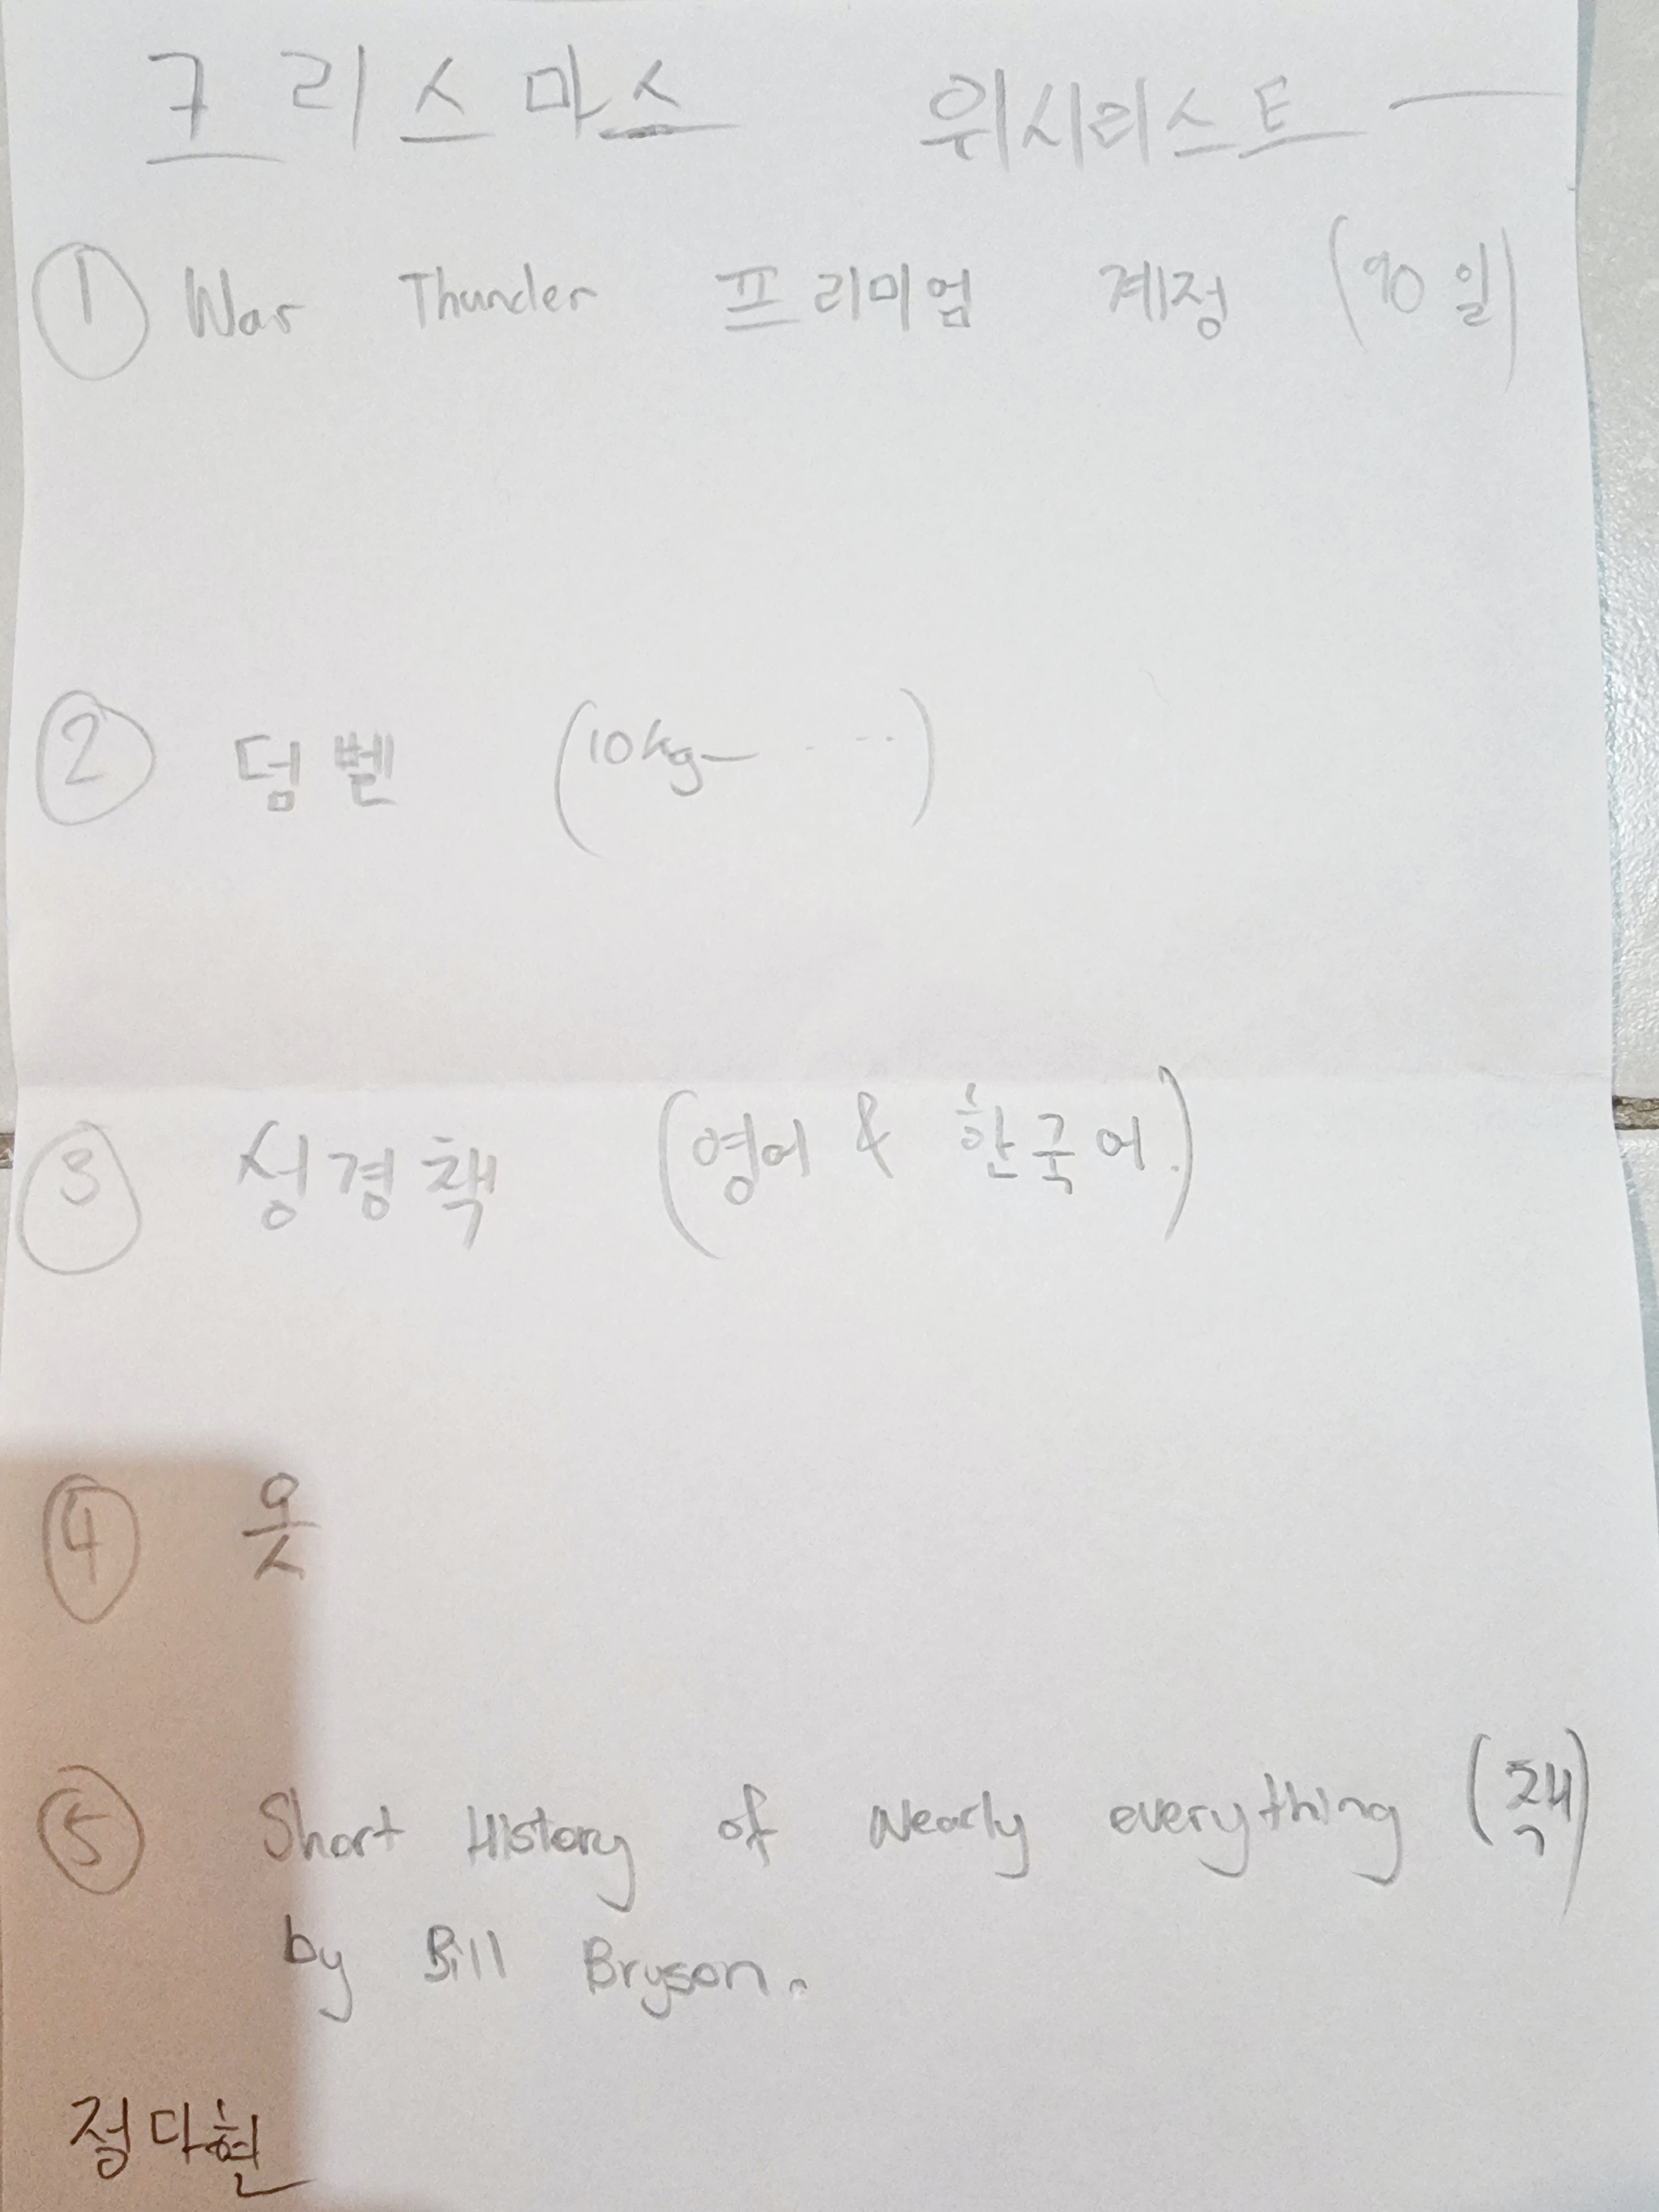 크리스마스 위시리스트
① War Thunder 프리미엄 계정 (90일)
② 덤벨 (10kg- ....)
③ 성경책 (영어 & 한국어.)
④ 옷
⑤ Short History of Nearly everything (책)
by Bill Bryson.
정다현